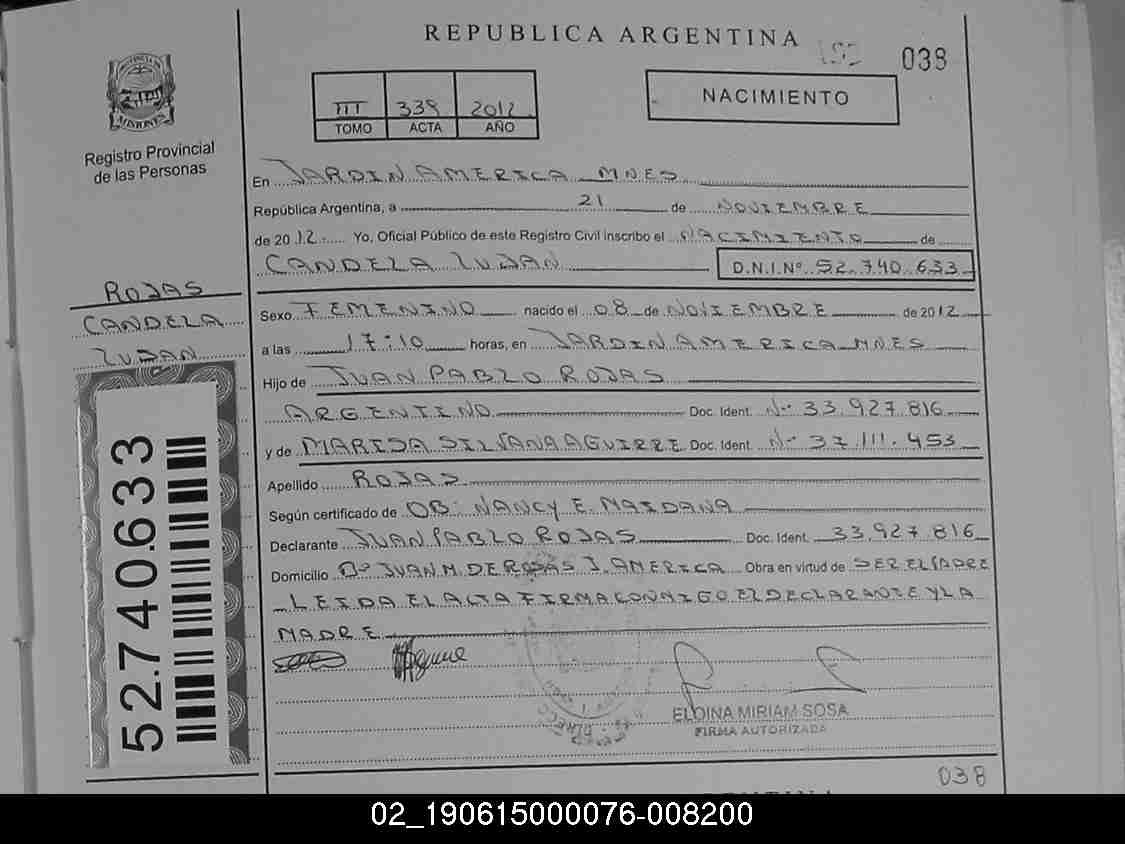 REPUBLICA ARGENTINA
038
PROVINCIA DE
MISIONES
Registro Provincial
de las Personas
III 339 2012
TOMO ACTA AÑO
NACIMIENTO
En JARDIN AMERICA MNES
República Argentina, a 21 de NOVIEMBRE
de 2012 Yo, Oficial Público de este Registro Civil inscribo el NACIMIENTO de
CANDELA LUJAN D.N.I.Nº 52.740.633
ROJAS
CANDELA
LUJAN
Sexo FEMENINO nacido el 08 de NOVIEMBRE de 2012
a las 17:10 horas, en JARDIN AMERICA MNES
Hijo de JUAN PABLO ROJAS
ARGENTINO Doc. Ident. Nº 33.927.816
y de MARISA SILVANA AGUIRRE Doc. Ident. Nº 37.111.453
Apellido ROJAS
Según certificado de OB: NANCY E. MAIDANA
Declarante JUAN PABLO ROJAS Doc. Ident. 33.927.816
Domicilio Bº JUAN M. DE ROSAS J. AMERICA Obra en virtud de SER EL PADRE
LEIDA EL ACTA FIRMA CONMIGO EL DECLARANTE Y LA
MADRE
52.740.633
ELOINA MIRIAM SOSA
FIRMA AUTORIZADA
038
02_190615000076-008200